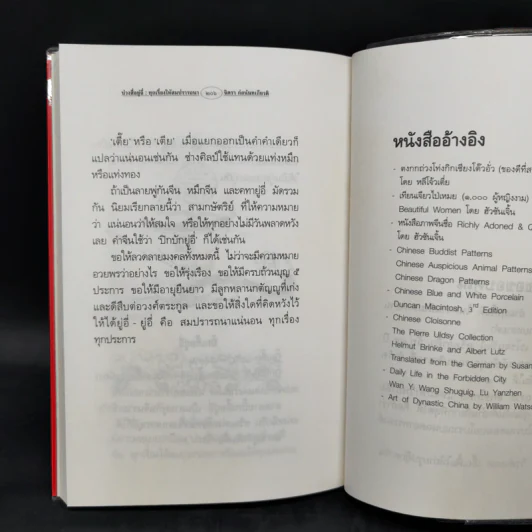 ปางสื่อยู่อี่ : ทุกเรื่องให้สมปรารถนา ๒๐๖ จิตรา ก่อนันทเกียรติ
'เตี๊ย' หรือ 'เตีย' เมื่อแยกออกเป็นคำคำเดียวก็
แปลว่าแน่นอนเช่นกัน ช่างศิลป์ใช้แทนด้วยแท่งหมึก
หรือแท่งทอง
ถ้าเป็นลายพู่กันจีน หมึกจีน และคทายู่อี่ มัดรวม
กัน นิยมเรียกลายนี้ว่า สามกษัตริย์ ที่ให้ความหมาย
ว่า แน่นอนว่าให้สมใจ หรือให้ทุกอย่างไม่มีวันพลาดหวัง
เลย คำจีนใช้ว่า 'ปิกบักยู่อี่' ก็ได้เช่นกัน
ขอให้ลวดลายมงคลทั้งหมดนี้ ไม่ว่าจะมีความหมาย
อวยพรว่าอย่างไร ขอให้รุ่งเรือง ขอให้มีครบถ้วนบุญ ๕
ประการ ขอให้มีอายุยืนยาว มีลูกหลานกตัญญูที่เก่ง
และดีสืบต่อวงศ์ตระกูล และขอให้สิ่งใดที่คิดหวังไว้
ให้ได้ยู่อี่ - ยู่อี่ คือ สมปรารถนาแน่นอน ทุกเรื่อง
ทุกประการ
หนังสืออ้างอิง
- ตงกกถ่วงโท่งกิกเซียงโต้วอั่ว (ของดีที่ส
โดย หลีโจ้วเตี่ย
- เทียนเจียวไป่เหมย (๑,๐๐๐ ผู้หญิงงาม)
Beautiful Women โดย ฮัวซันเจิ้น
- หนังสือภาพจีนชื่อ Richly Adoned & C
โดย ฮัวซันเจิ้น
- Chinese Buddist Patterns
Chinese Auspicious Animal Patterns
Chinese Dragon Patterns
- Chinese Blue and White Porcelain
Duncan Macintosh, 3rd Edition
- Chinese Cloisonne
The Pierre Uldsy Collection
Helmut Brinke and Albert Lutz
Translated from the German by Susan
- Daily Life in the Forbidden City
Wan Yi, Wang Shuguig, Lu Yanzhen
- Art of Dynastic China by William Wats